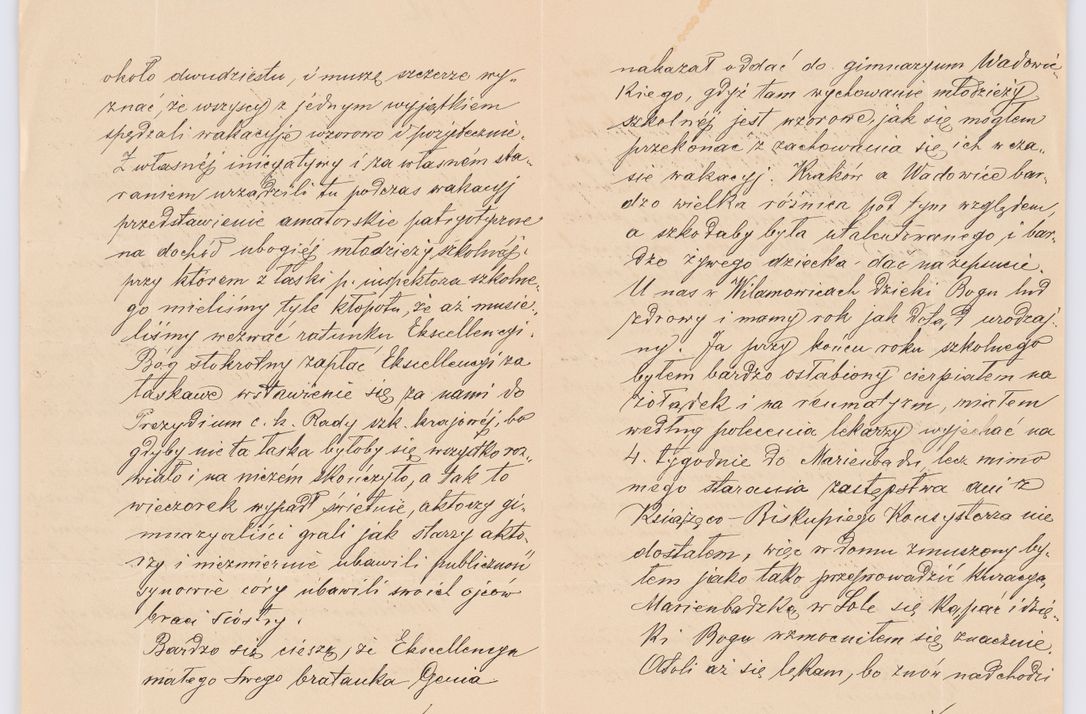 około dwudziestu, i muszę szczerze wy-
znać, że wszyscy z jednym wyjątkiem
spędzali wakacyje wzorowo i pożytecznie.
Z własnéj inicyatywy i za własném sta-
raniem urządzili tu podczas wakacyj
przedstawienie amatorskie patryotyczne
na dochód ubogiéj młodzieży szkolnéj,
przy którem z łaski p. inspektora szkolne-
go mieliśmy tyle kłopotu, że aż musie-
liśmy wezwać ratunku Ekscellencyi.
Bóg stokrotny zapłać Ekscellencyi za
łaskawe wstawienie się za nami do
Prezydium c. k. Rady szk. krajowéj, bo
gdyby nie ta łaska byłoby się wszystko roz-
wiało i na niczém skończyło, a tak to
wieczorek wypadł świetnie, aktorzy gi-
mnazyaliści grali jak starzy akto-
rzy i niezmiernie ubawili publiczność
synowie córy ubawili swoich ojców
braci siostry.
Bardzo się cieszę, że Ekscellencya
małego Swego bratanka Genia
nakazał oddać do gimnazyum Wadowic-
kiego, gdyż tam wychowanie młodzieży
szkolnéj jest wzorowe, jak się mogłem
przekonać z zachowania się ich w cza-
sie wakacyj. Kraków a Wadowice bar-
dzo wielka różnica pod tym względem,
a szkodaby była utalentowanego i bar-
dzo żywego dziecka dać na zepsucie.
U nas w Wilamowicach dzięki Bogu lud
zdrowy i mamy rok jak dotąd urodzaj-
ny. Ja przy końcu roku szkolnego
byłem bardzo osłabiony cierpiałem na
żołądek i na reumatyzm, miałem
według polecenia lekarzy wyjechać na
4. tygodnie do Marienbadu, lecz mimo
mego starania zastępstwa ani z
Książęco-Biskupiego Konsystorza nie
dostałem, więc w domu zmuszony by-
łem jako tako przeprowadzić kuracyą
Marienbadzką, w Sole się kąpać i dzię-
ki Bogu wzmocniłem się znacznie.
Atoli aż się lękam, bo znów nadchodzi